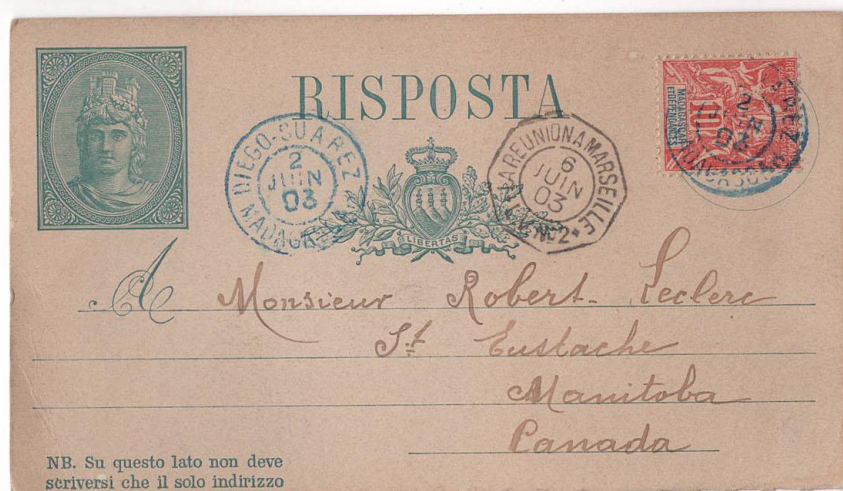 RISPOSTA
DIEGO-SUAREZ
2
JUIN
03
LA REUNION A MARSEILLE
6
JUIN
03
L.V. No 2
MADAGASCAR
ET DÉPENDANCES
10
2
JUIN
03
LIBERTAS
A Monsieur Robert Leclerc
St Eustache
Manitoba
Canada
NB. Su questo lato non deve
scriversi che il solo indirizzo